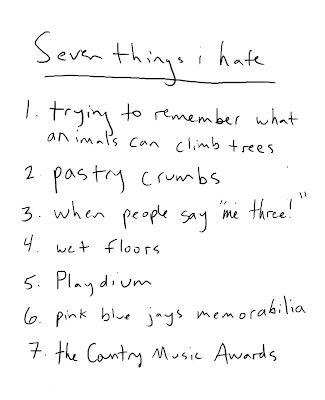 Seven things i hate
1. trying to remember what
animals can climb trees
2. pastry crumbs
3. when people say "me three!"
4. wet floors
5. Playdium
6. pink blue jays memorabilia
7. the Contry Music Awards